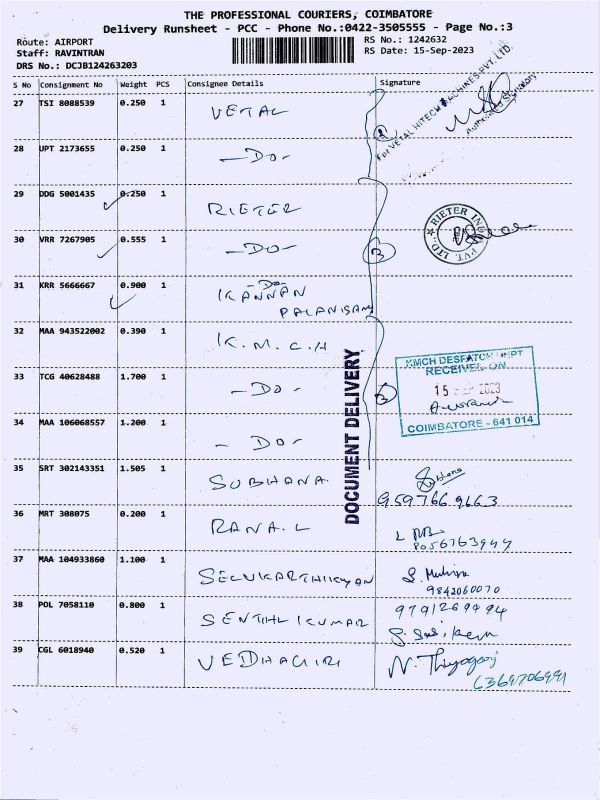 THE PROFESSIONAL COURIERS, COIMBATORE
Delivery Runsheet - PCC - Phone No.:0422-3505555 - Page No.:3
Route: AIRPORT RS No.: 1242632
Staff: RAVINTRAN RS Date: 15-Sep-2023
DRS No.: DCJB124263203
S No Consignment No Weight PCS Consignee Details Signature
27 TSI 8088539 0.250 1 VETAL
For VETAL HITECH MACHINES PVT. LTD.
Authorised Signatory
28 UPT 2173655 0.250 1 -DO-
29 DDG 5001435 0.250 1 RIETER
RIETER INDIA PVT. LTD.
30 VRR 7267905 0.555 1 -DO-
31 KRR 5666667 0.900 1 -DO-
KANNAN
PALANISAMY
32 MAA 943522002 0.390 1 K.M.C.H
KMCH DESPATCH DEPT
RECEIVED ON
33 TCG 40628488 1.700 1 -DO- 15 SEP 2023
34 MAA 106068557 1.200 1 -DO-
COIMBATORE - 641 014
DOCUMENT DELIVERY
35 SRT 302143351 1.505 1 SUBHANA
9597669663
36 MRT 308075 0.200 1 RANA.L
8056763944
37 MAA 104933860 1.100 1 SELVKARTHIKYAN
9842060070
38 POL 7058110 0.800 1 SENTHIL KUMAR 9791269494
39 CGL 6018940 0.520 1 VEDHAGIRI N. Thiyagaraj
6369706991